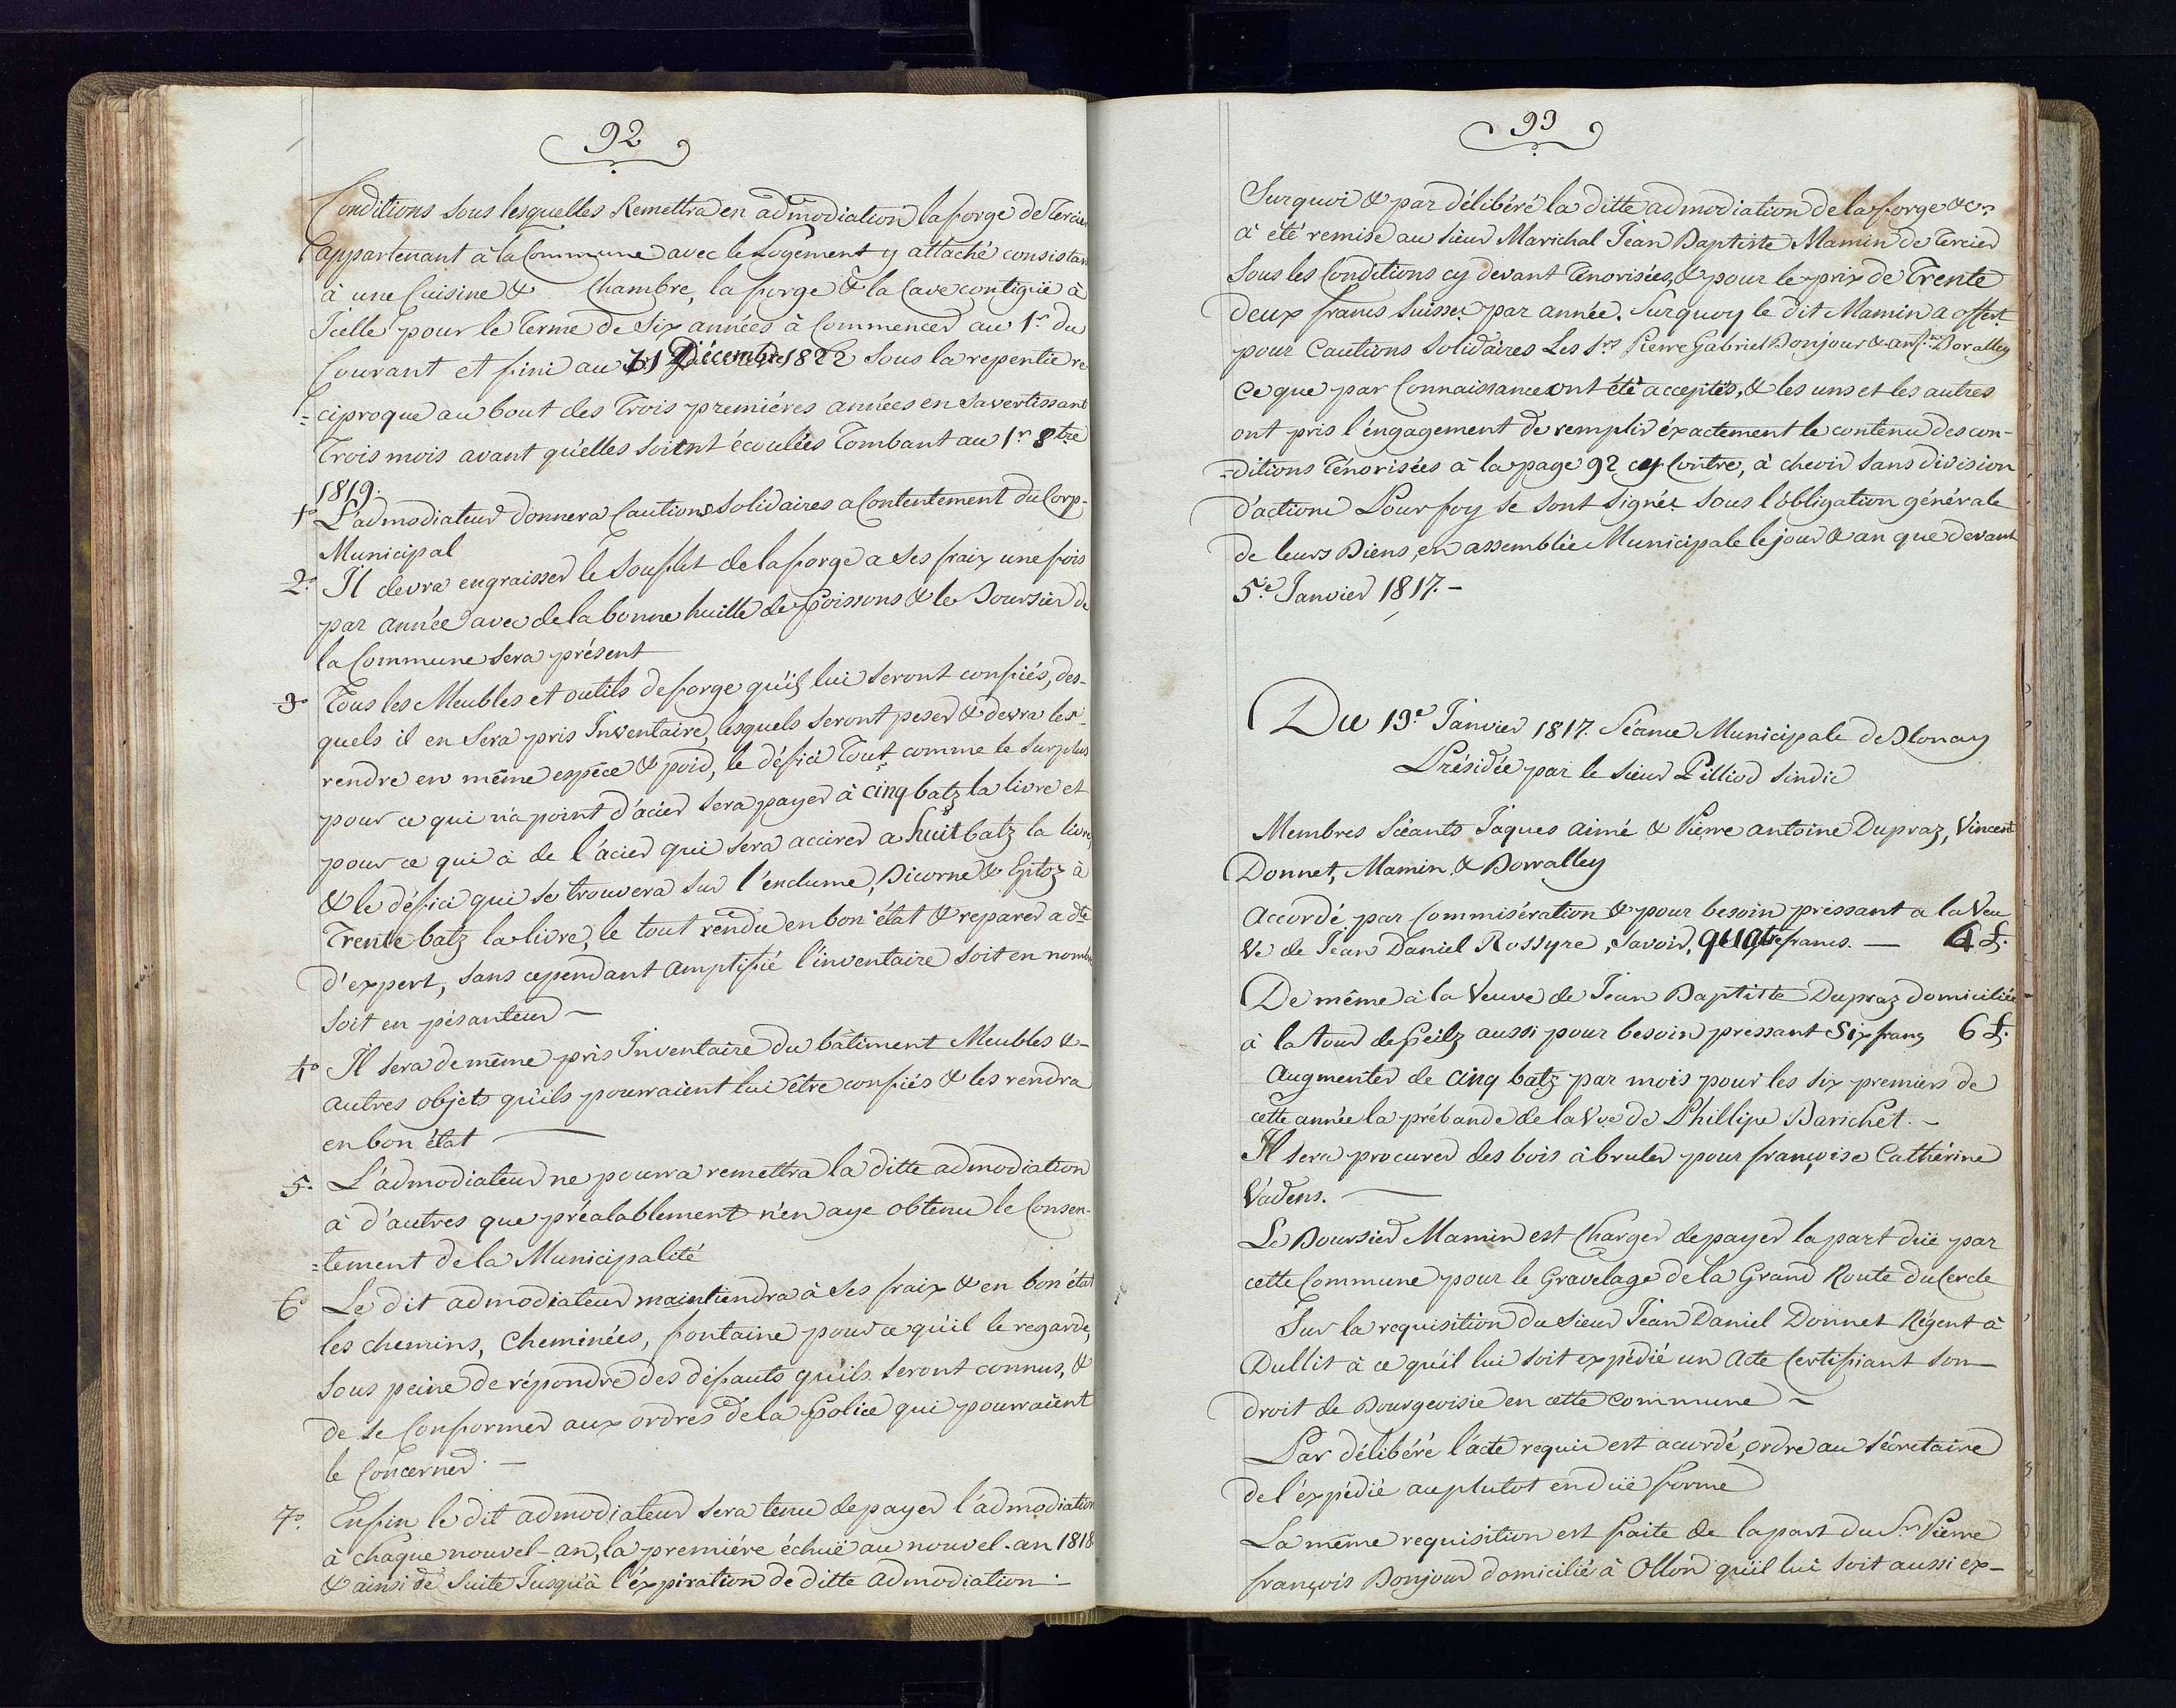 92
Conditions sous lesquelles Remettra en admodiation la forge de Tercier
appartenant à la Commune avec le Logement y attaché consistan
à une Cuisine & Chambre, la forge & la Cave contigüe à
Icelle pour le Terme de Six années à Commencer au 1r. du
Courant et fini au 31 Décembre 1822 sous la repentie re
=ciproque au bout des Trois premiéres années en Savertissant
Trois mois avant qu'elles soient écoulées Tombant au 1r 8bre
1819.
1o L'admodiateur donnera Cautions Solidaires a Contentement du Corp-
Municipal
2o. Il devra engraisser le Souflet de la forge a ses fraix une fois
par année avec de la bonne huille de Poissons & le Boursier de
la Commune sera présent
3o Tous les Meubles et outils de forge qu'ils lui seront confiés, des-
quels il en Sera pris Inventaire, lesquels seront peser & devra les-
rendre en même espèce & poid, le défici Tout comme le Surplus
pour ce qui n'a point d'acier sera payer à cinq batz la livre et
pour ce qui à de l'acier qui sera accirer a huit batz la livre,
& le défici qui se trouvera sur l'enclume, Bicorne & Epitoz à
Trente batz la livre, le tout rendu en bon état & reparer a dte
d'expert, sans cependant amplifié l'inventaire soit en nombre
soit en pésanteur -
4o Il sera de même pris Inventaire du bâtiment Meubles &-
autres objets qu'ils pourraient lui être confiés & les rendra
en bon état
5. L'admodiateur ne pourra remettra la ditte admodiation
à d'autres que préalablement n'en aye obtenu le Consen-
=tement de la Municipalité
6o Le dit admodiateur maintiendra à ses fraix & en bon état
les chemins, Cheminées, fontaine pour ce qu'il le regarde,
sous peine de répondre des défauts qu'ils seront connus, &
de se Conformer aux ordres de la Police qui pourraient
le Concerner. -
7o. Enfin le dit admodiateur sera tenu de payer l'admodiation
à chaque nouvel-an, la premiére échuë au nouvel-an 1818
& ainsi de Suite Jusqu'à l'éxpiration de ditte Admodiation.-
93
Surquoi & par délibéré la ditte admodiation de la forge &ca
à été remise au Sieur Marichal Jean Baptiste Mamin de Tercier
Sous les Conditions cy devant Ténorisées, & pour le prix de Trente
deux francs Suisses par année. Surquoy le dit Mamin a offert
pour Cautions Solidaires Les Srs Pierre Gabriel Bonjour & Dovalley
Ce que par Connaissance ont été acceptés, & les uns et les autres
ont pris l'engagement de remplir éxactement le contenu des con-
=ditions Ténorisées à la page 92 cy Contre, à chevir sans division
d'action. Pour foy se sont signés sous l'obligation générale
de leurs Biens, en assemblée Municipale le jour & an que devant
5.e Janvier 1817.-
Du 13.e Janvier 1817. Séance Municipale de Blonay
Présidée par le Sieur Pilliod Sindic
Membres Séants Jaques aimé & Pierre antoine Dupraz, Vincent
Donnet, Mamin & Dovalley
Accordé par Commisération & pour besoin pressant a la Veu
Ve de Jean Daniel Rossyre, Savoir, quatre francs. — 4 £.
De même à la Veuve de Jean Baptiste Dupraz domiciliée
à la tour de Peilz aussi pour besoin pressant Six franz 6 £.
Augmenter de cinq batz par mois pour les six premiers de
cette année la prébande de la Vve de Phillipe Barichet.-
Il sera procurer des bois à bruler pour françoise Cathérine
Vadens. —
Le Boursier Mamin est Charger de payer la part duë par
cette Commune pour le Gravelage de la Grand Route du Cercle
Sur la requisition du Sieur Jean Daniel Donnet Régent à
Dullit à ce qu'il lui soit expédié un Acte Certifiant son
droit de Bourgeoisie en cette Commune -
Par délibéré l'acte requis est accordé, ordre au sécretaire
de l'éxpédié au plutot en duë forme
La même requisition est faite de la part du Sr. Pierre
françois Bonjour domicilié à Ollon qu'il lui soit aussi ex-